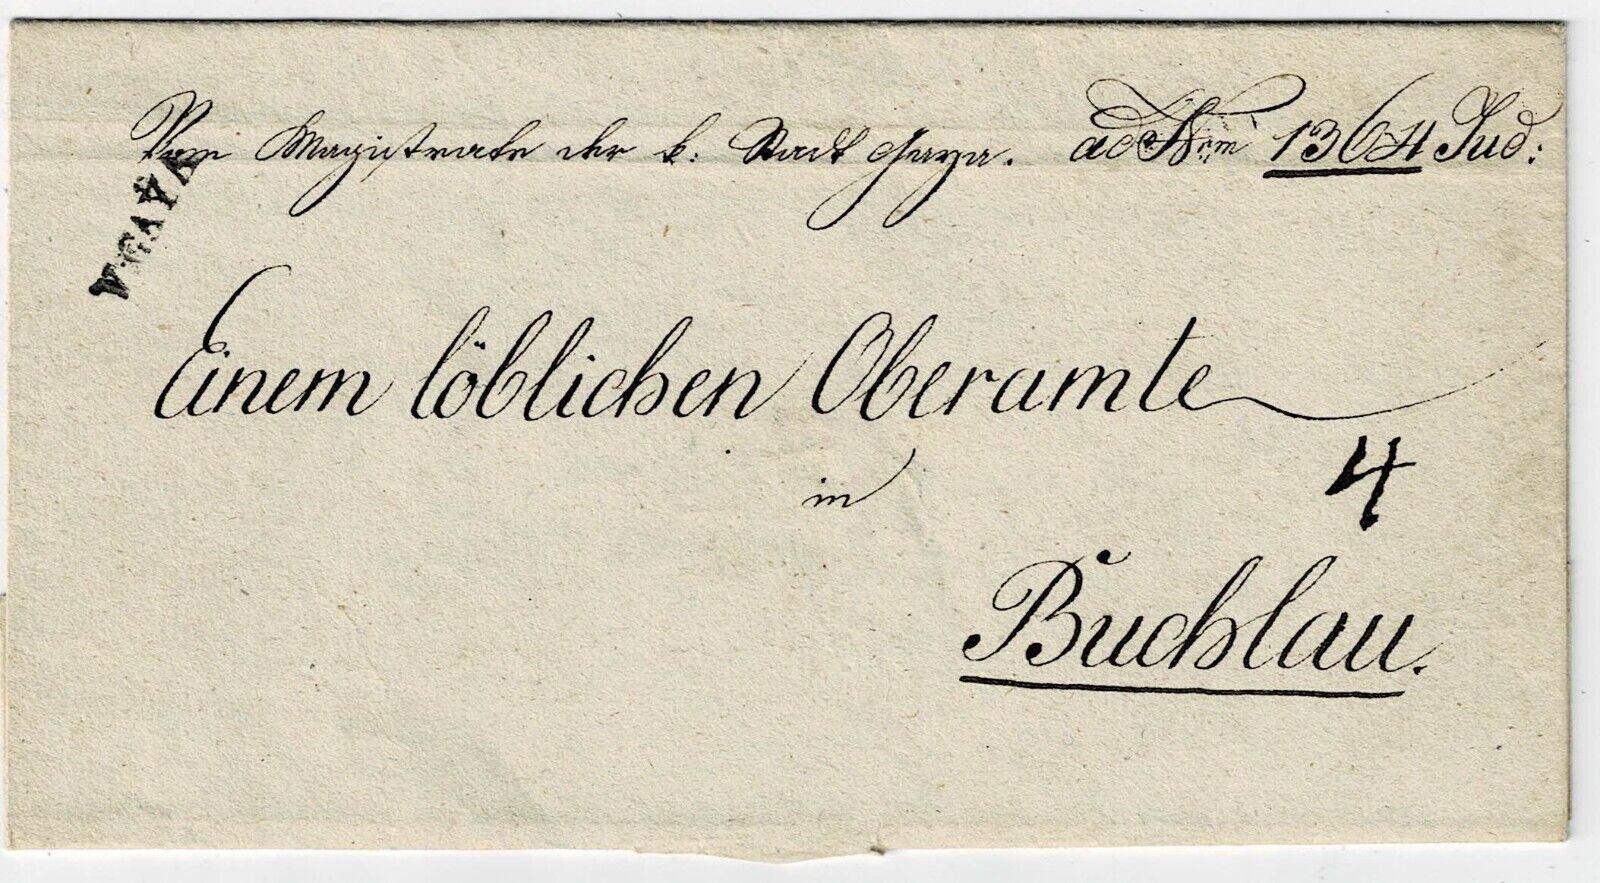 Vom Magistrate der k: Stadt Gaya. ad Nrum 1364 Jud:
V. GAYA
Einem löblichen Oberamte
4
in
Buchlau.